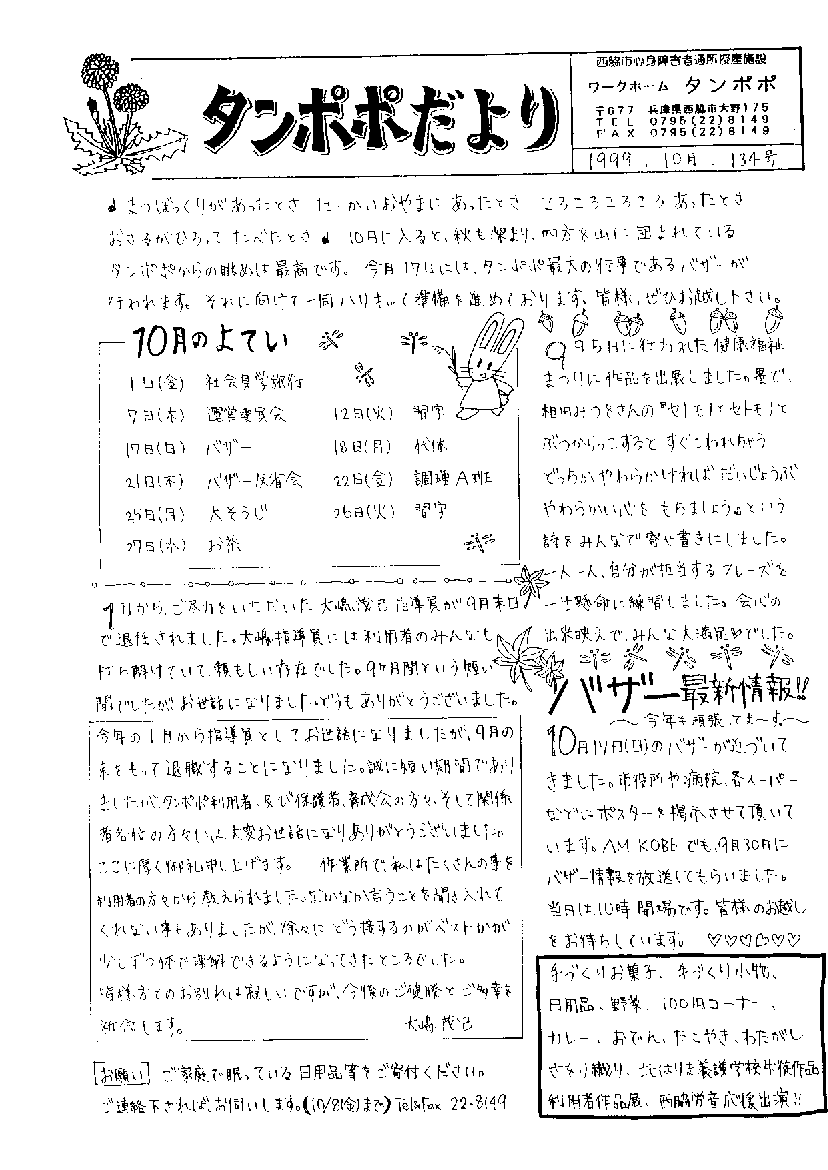 タンポポだより
西脇市心身障害者通所授産施設
ワークホーム タンポポ
〒677 兵庫県西脇市大野175
TEL 0795(22)8149
FAX 0795(22)8149
1999.10月.134号
♪まつぼっくりがあったとさ たーかいおやまに あったとさ ころころころころ あったとさ
おさるがひろって たべたとさ♪ 10月に入ると、秋も深まり、四方を山に囲まれている
タンポポからの眺めは最高です。今月17日には、タンポポ最大の行事であるバザーが
行われます。それに向けて一同ハリきって準備を進めております。皆様、ぜひお越し下さい。
10月のよてい
1日(金) 社会見学旅行
7日(木) 運営委員会 12日(火) 習字
17日(日) バザー 18日(月) 代休
21日(木) バザー反省会 22日(金) 調理A班
25日(月) 大そうじ 26日(火) 習字
27日(水) お茶
9月5日に行われた健康福祉
まつりに作品を出展しました。墨で、
相田みつをさんの『セトモノとセトモノと
ぶつかりっこすると すぐこわれちゃう
どっちかやわらかければ だいじょうぶ
やわらかい心を もちましょう』という
詩をみんなで寄せ書きにしました。
一人一人、自分が担当するフレーズを
一生懸命に練習しました。会心の
出来映えで、みんな大満足でした。
1月から、ご尽力をいただいた 大嶋茂己 指導員が9月末日
で退任されました。大嶋指導員には利用者のみんなも
打ち解けていて、頼もしい存在でした。9ヶ月間という短い
間でしたが、お世話になりました。どうもありがとうございました。
今年の1月から指導員としてお世話になりましたが、9月の
末をもって退職することになりました。誠に短い期間であり
ましたが、タンポポ利用者、及び保護者、育成会の方々、そして関係
者各位の方々には、大変お世話になりありがとうございました。
ここに厚く御礼申し上げます。 作業所で、私はたくさんの事を
利用者の方々から教えられました。なかなか言うことを聞き入れて
くれない事もありましたが、徐々に どう接するのがベストかが
少しずつ体で理解できるようになってきたところでした。
皆様方とのお別れは寂しいですが、今後のご健勝とご多幸を
祈念します。 大嶋 茂己
バザー最新情報!!
〜今年も頑張ってまーす〜
10月17日(日)のバザーが近づいて
きました。市役所や病院、各スーパー
などにポスターを掲示させて頂いて
います。AM KOBEでも、9月30日に
バザー情報を放送してもらいました。
当日は、10時開場です。皆様のお越し
をお待ちしています。 ♡♡♡♡♡♡♡
手づくりお菓子、手づくり小物、
日用品、野菜、100円コーナー、
カレー、おでん、たこやき、わたがし
さをり織り、北はりま養護学校生徒作品
利用者作品展、西脇労音応援出演!!
[お願い] ご家庭で眠っている日用品等をご寄付ください。
ご連絡下されば、お伺いします。(10/8(金)まで) Tel&Fax 22-8149